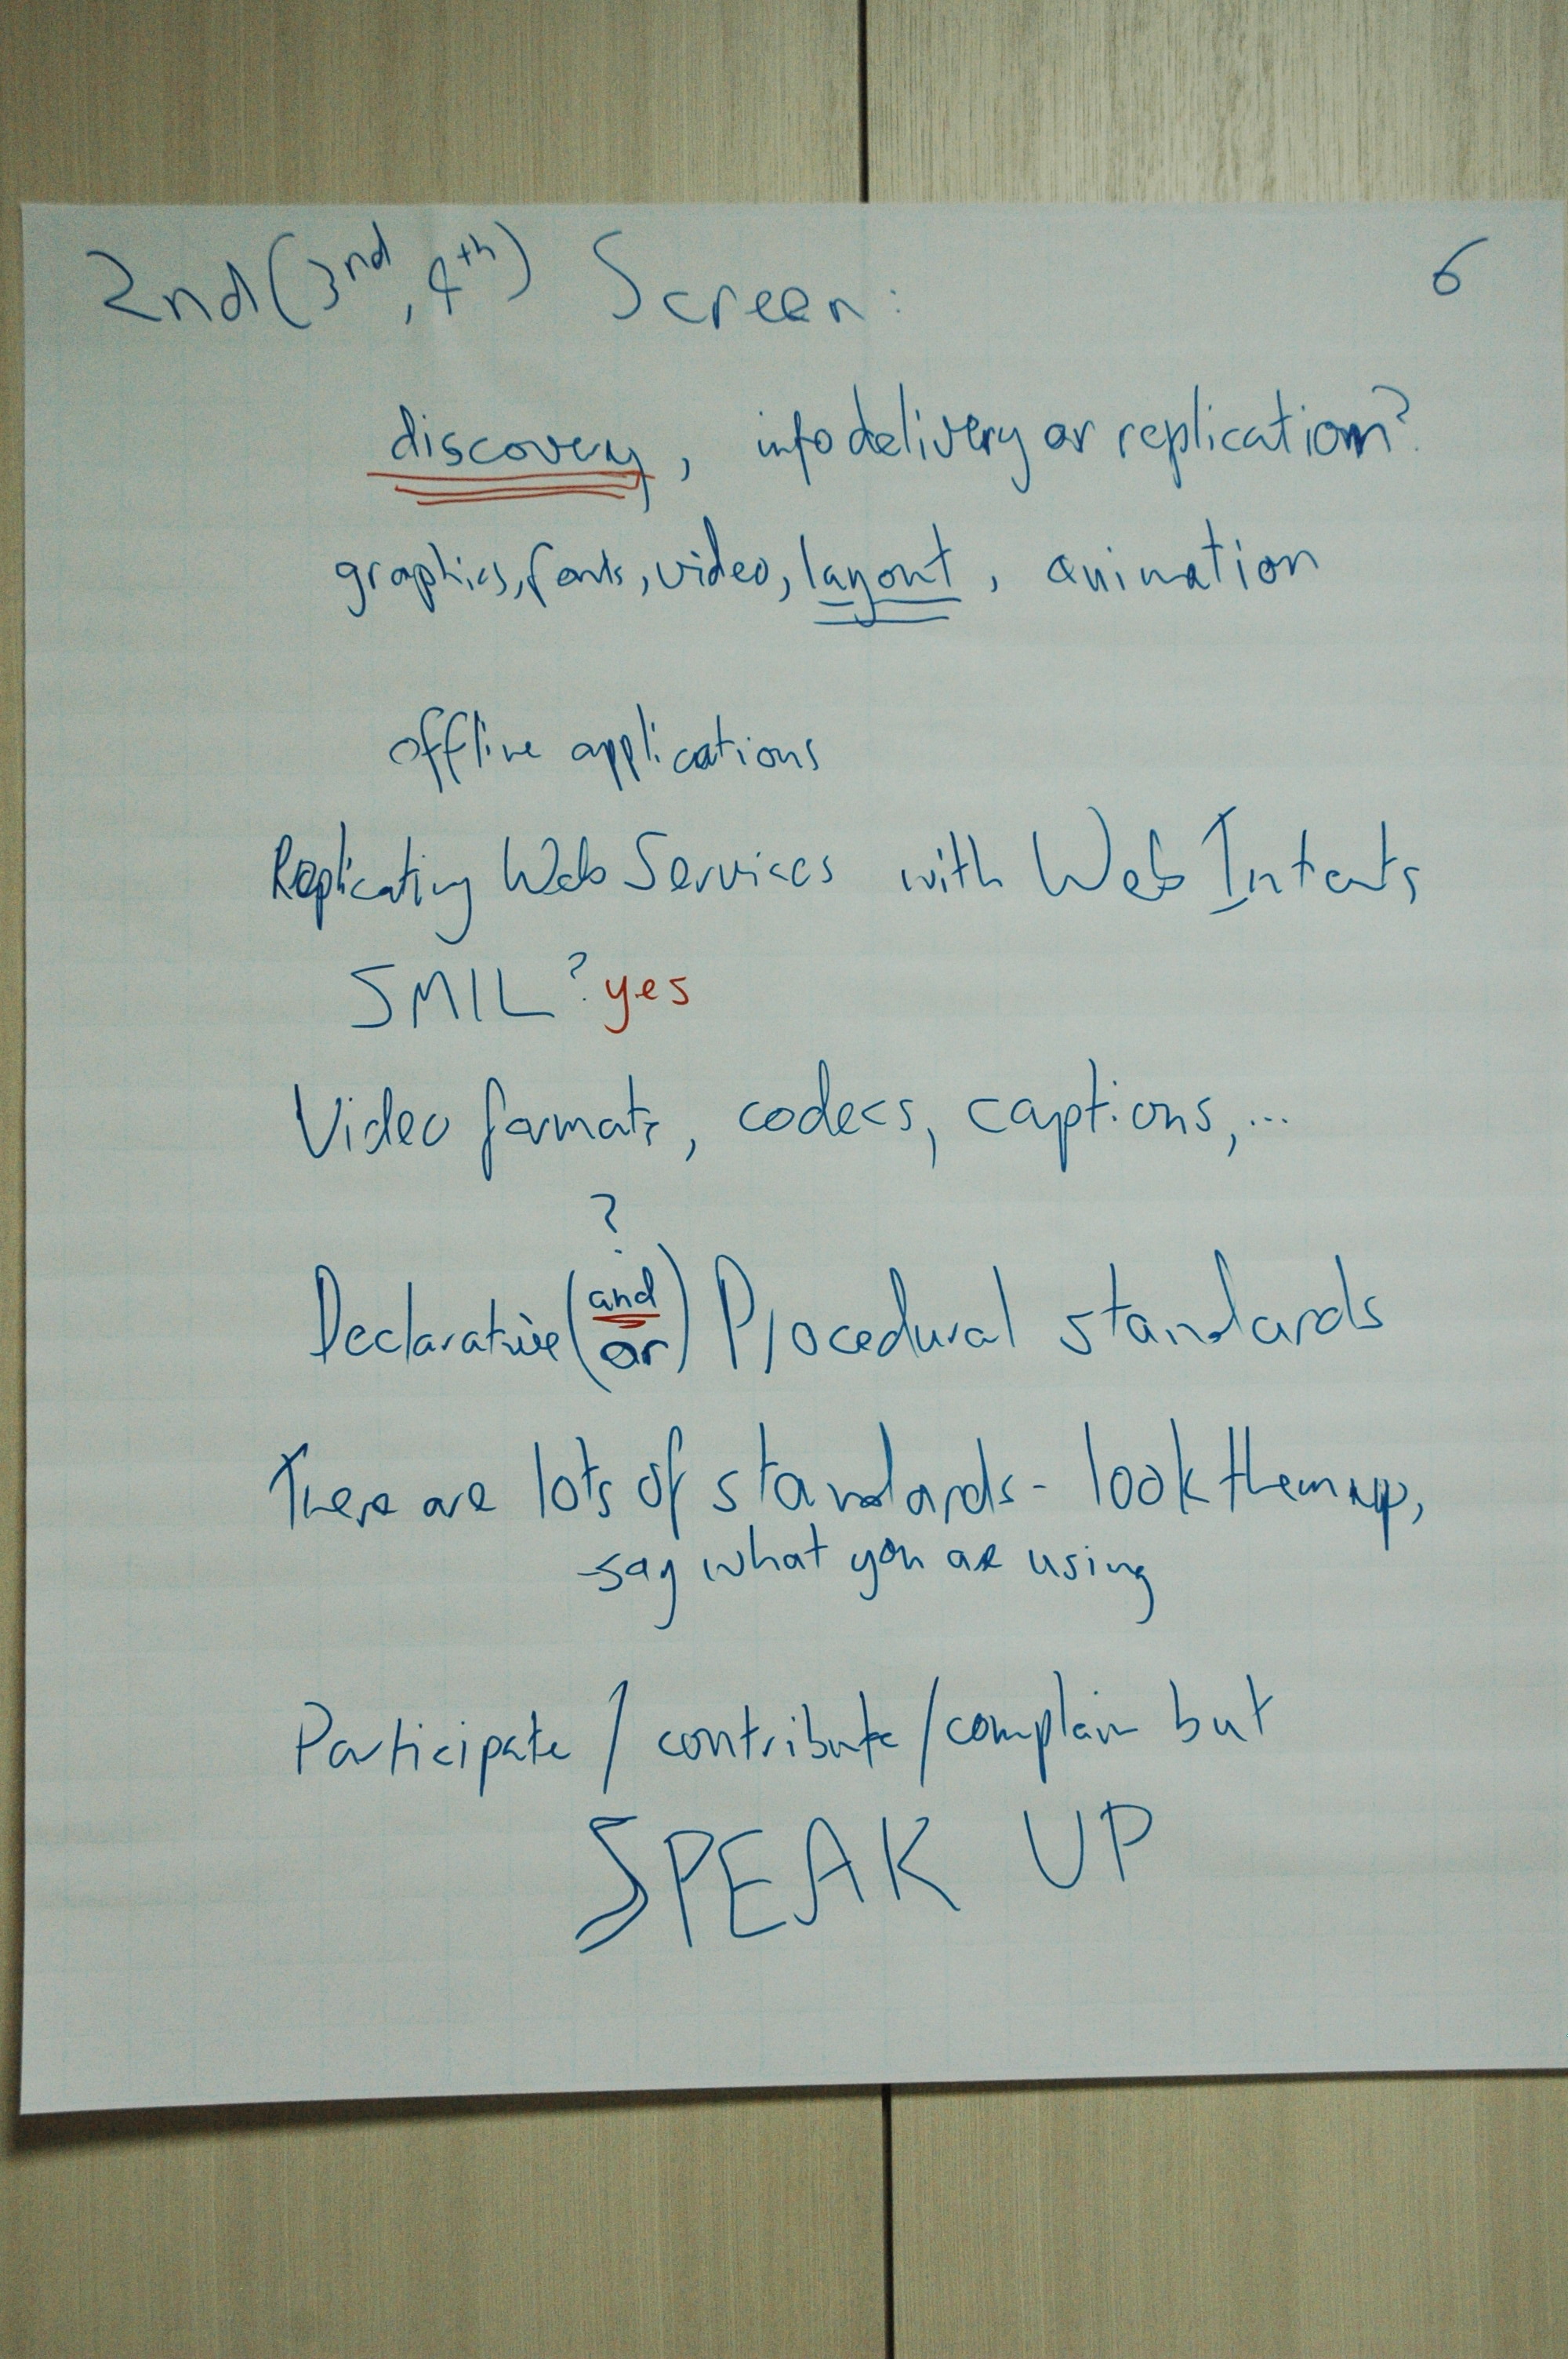 2nd (3nd, 4th) Screen: 6
discovery, info delivery or replication?
graphics, fonts, video, layout, animation
offline applications
Replicating Web Services with Web Intents
SMIL? yes
Video formats, codecs, captions, ...
?
Declarative (and or) Procedural standards
There are lots of standards - look them up,
say what you are using
Participate / contribute / complain but
SPEAK UP